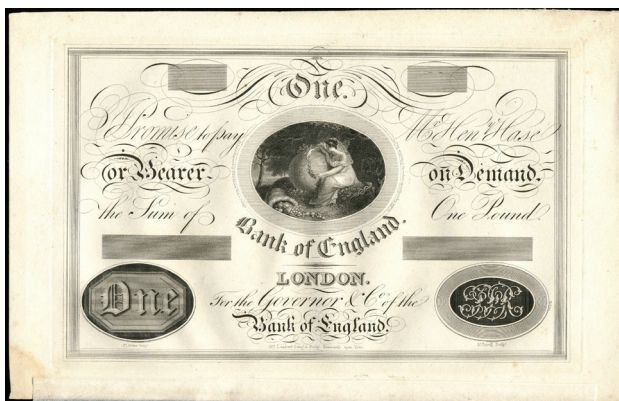 One.
I Promise to pay Mr. Henry Hase
or Bearer on Demand.
the Sum of One Pound
Bank of England.
LONDON.
One
For the Governor & Co. of the
Bank of England.